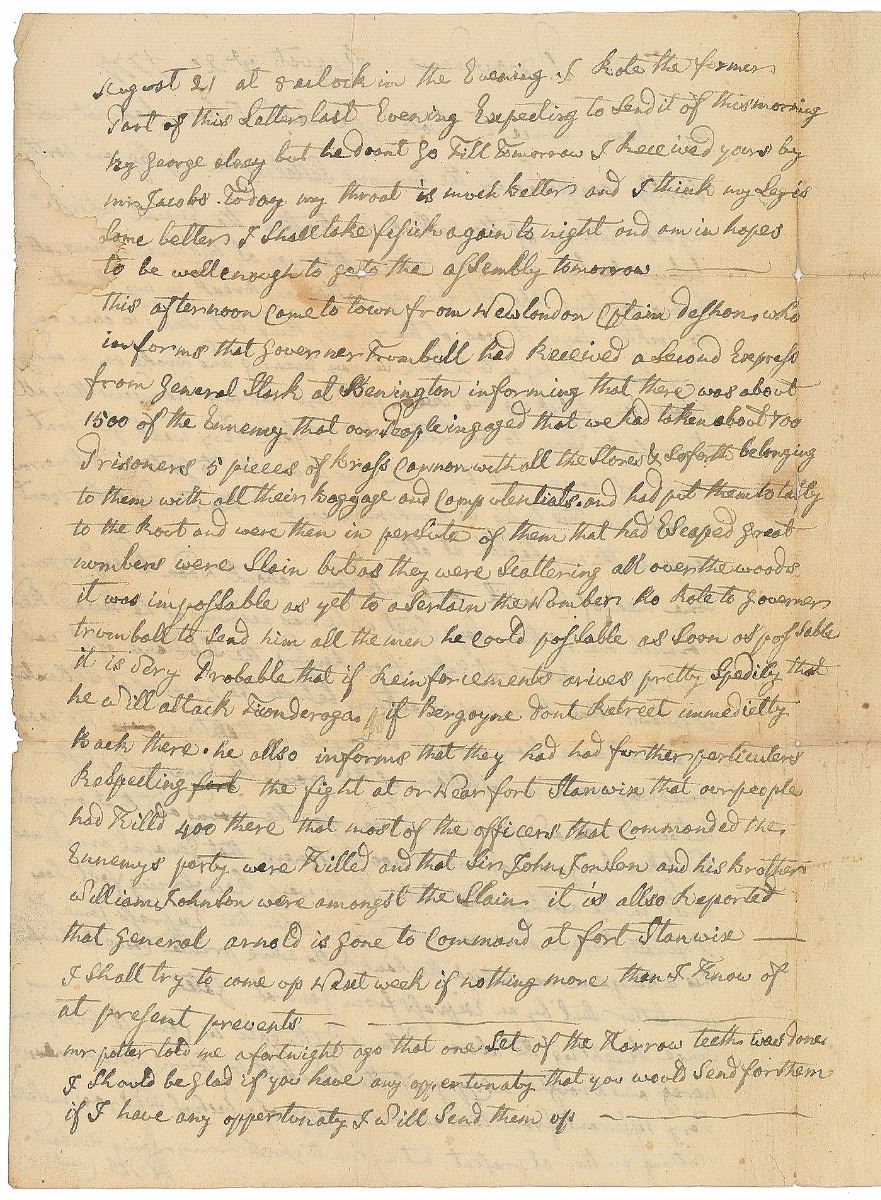 August 21 at 8 aclock in the Evening. I Rote the former
Part of this Letter last Evening Expecting to Send it of this morning
by George olney but he doant Go Till Tomorrow I Received yours by
mr Jacobs. Today my throat is much better and I think my Leg is
Some better I Shall take fisick again to night and am in hopes
to be well enough to go to the assembly tomorrow
this afternoon Came to town from Newlondon Cptain deshon, who
informs that Governer Trombull had Received a Second Express
from General Stark at Benington informing that there was about
1500 of the Ennemy that our People ingaged that we had taken about 700
Prisoners 5 pieces of brass Cannon with all the Stores & Soforth belonging
to them with all their baggage and and had put them totally
to the Root and were then in persute of them that had Escaped Great
numbers were Slain but as they were Scattering all over the woods
it was impossable as yet to asertain the Number he Rote to Governer
trumball to Send him all the men he Could possable as Soon as possable
it is Very Probable that if Reinforcements arives pretty Spedily that
he will attack Ticonderoga if Bergoyne dont Retreet immedietly
Back there. he allso informs that they had had further perticulers
Respecting fort the fight at or Near fort Stanwix that our people
had Killd 400 there that most of the officers that Commanded the
Ennemys party were Killed and that Sir John Jonson and his Brother
William Johnson were amongst the Slain it is allso Reported
that General arnold is Gone to Command at fort Stanwix
I Shall try to Come up Next week if nothing more than I Know of
at present prevents
mr potter told me a fortnight ago that one Set of the Harrow teeth was done
I Should be Glad if you have any oppertunaty that you would Send for them
if I have any oppertunaty I will Send them up